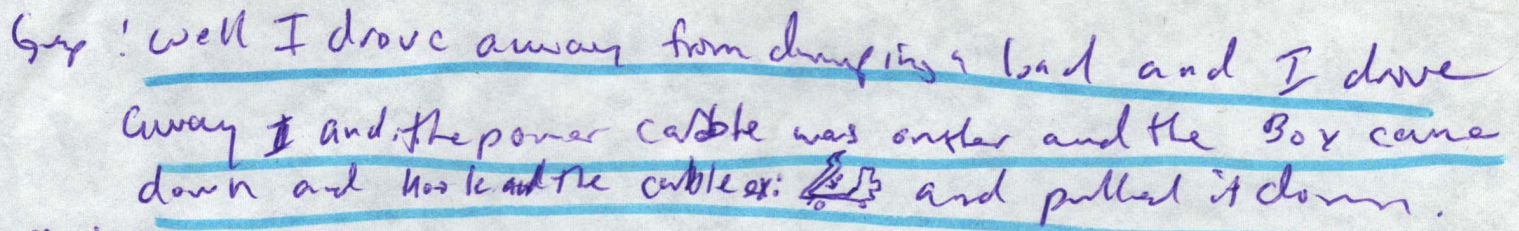 : well I drove away from dumping a load and I drove
away I and the power cabble was onther and the Box came
down and Hook and the cable ex: and pulled it down.